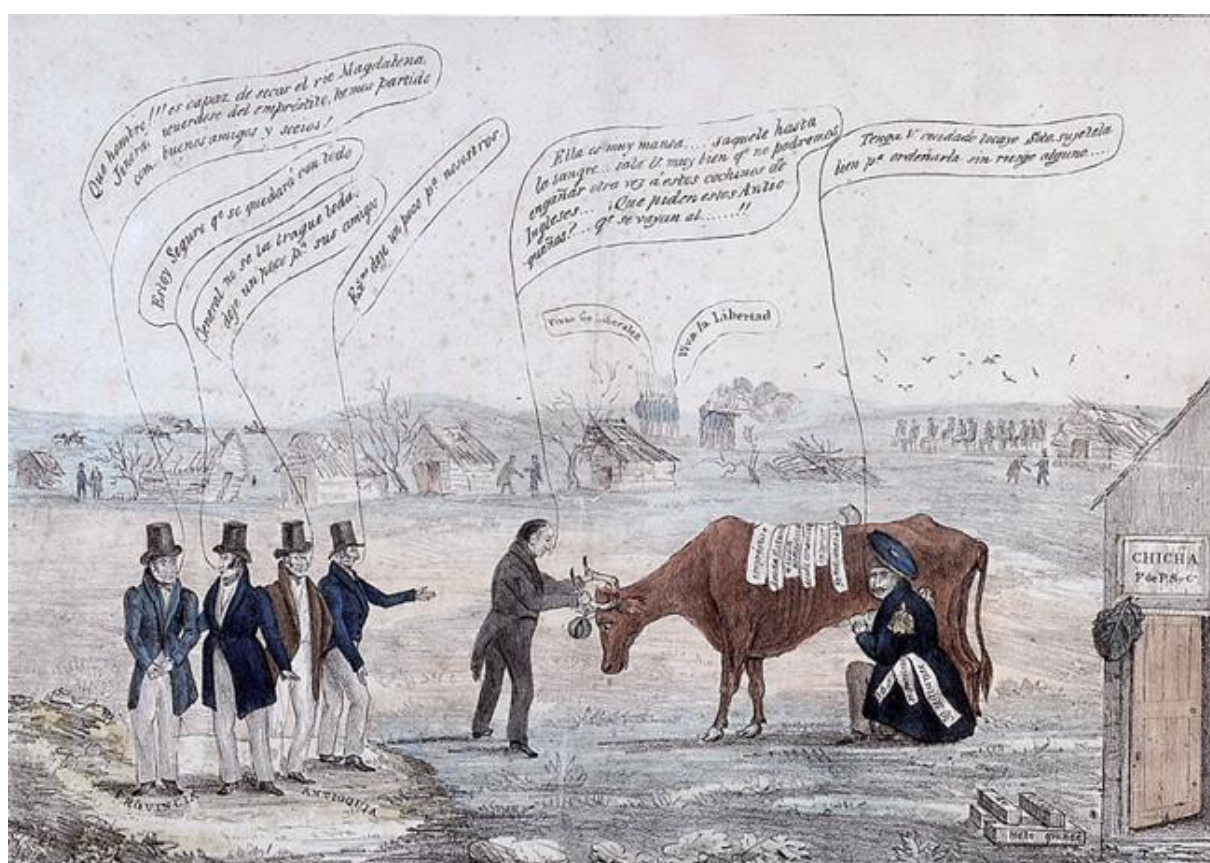 Que hombre!!! es capaz de secar el rio Magdalena.
Señora, acuerdese del empréstito, hemos partido
como buenos amigos y socios!
Estoy Seguro qe se quedará con todo
General no se la trague toda.
deje un poco pa. sus amigos
deje un poco pa. nosotros
Ella es muy mansa.... saquele hasta
la sangre... sabe U. muy bien qe no podremos
engañar otra vez á estos cochinos de
Ingleses.... ¡Que piden estos Antio-
queños?... qe se vayan al.......!!
Tenga V cuidado tocayo Sto. sujetela
bien pa ordeñarla sin riesgo alguno.....
Vivan los Liberales
Viva la Libertad
PROVINCIA
ANTIOQUIA
CHICHA
Pa de P. S. y Ca
Hato grande